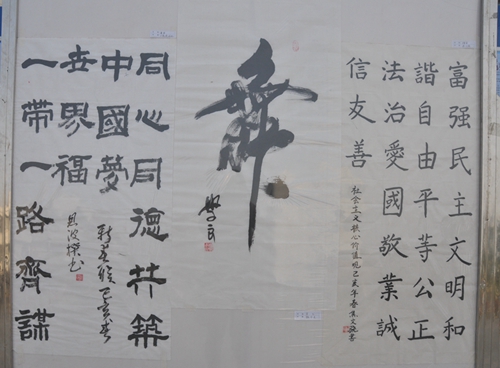 富强民主文明和
諧自由平等公正
法治愛國敬業誠
信友善
社会主义核心价值观己亥年春
舞
同心同德共築
中國夢
一帶一路齊謀
世界福